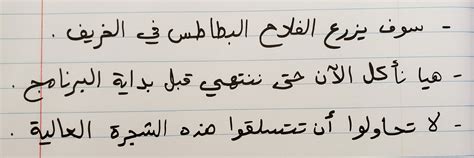 - سوف يزرع الفلاح البطاطس في الخريف .
- هيا نأكل الآن حتى ننتهي قبل بداية البرنامج .
- لا تحاولوا أن تتسلقوا هذه الشجرة العالية .